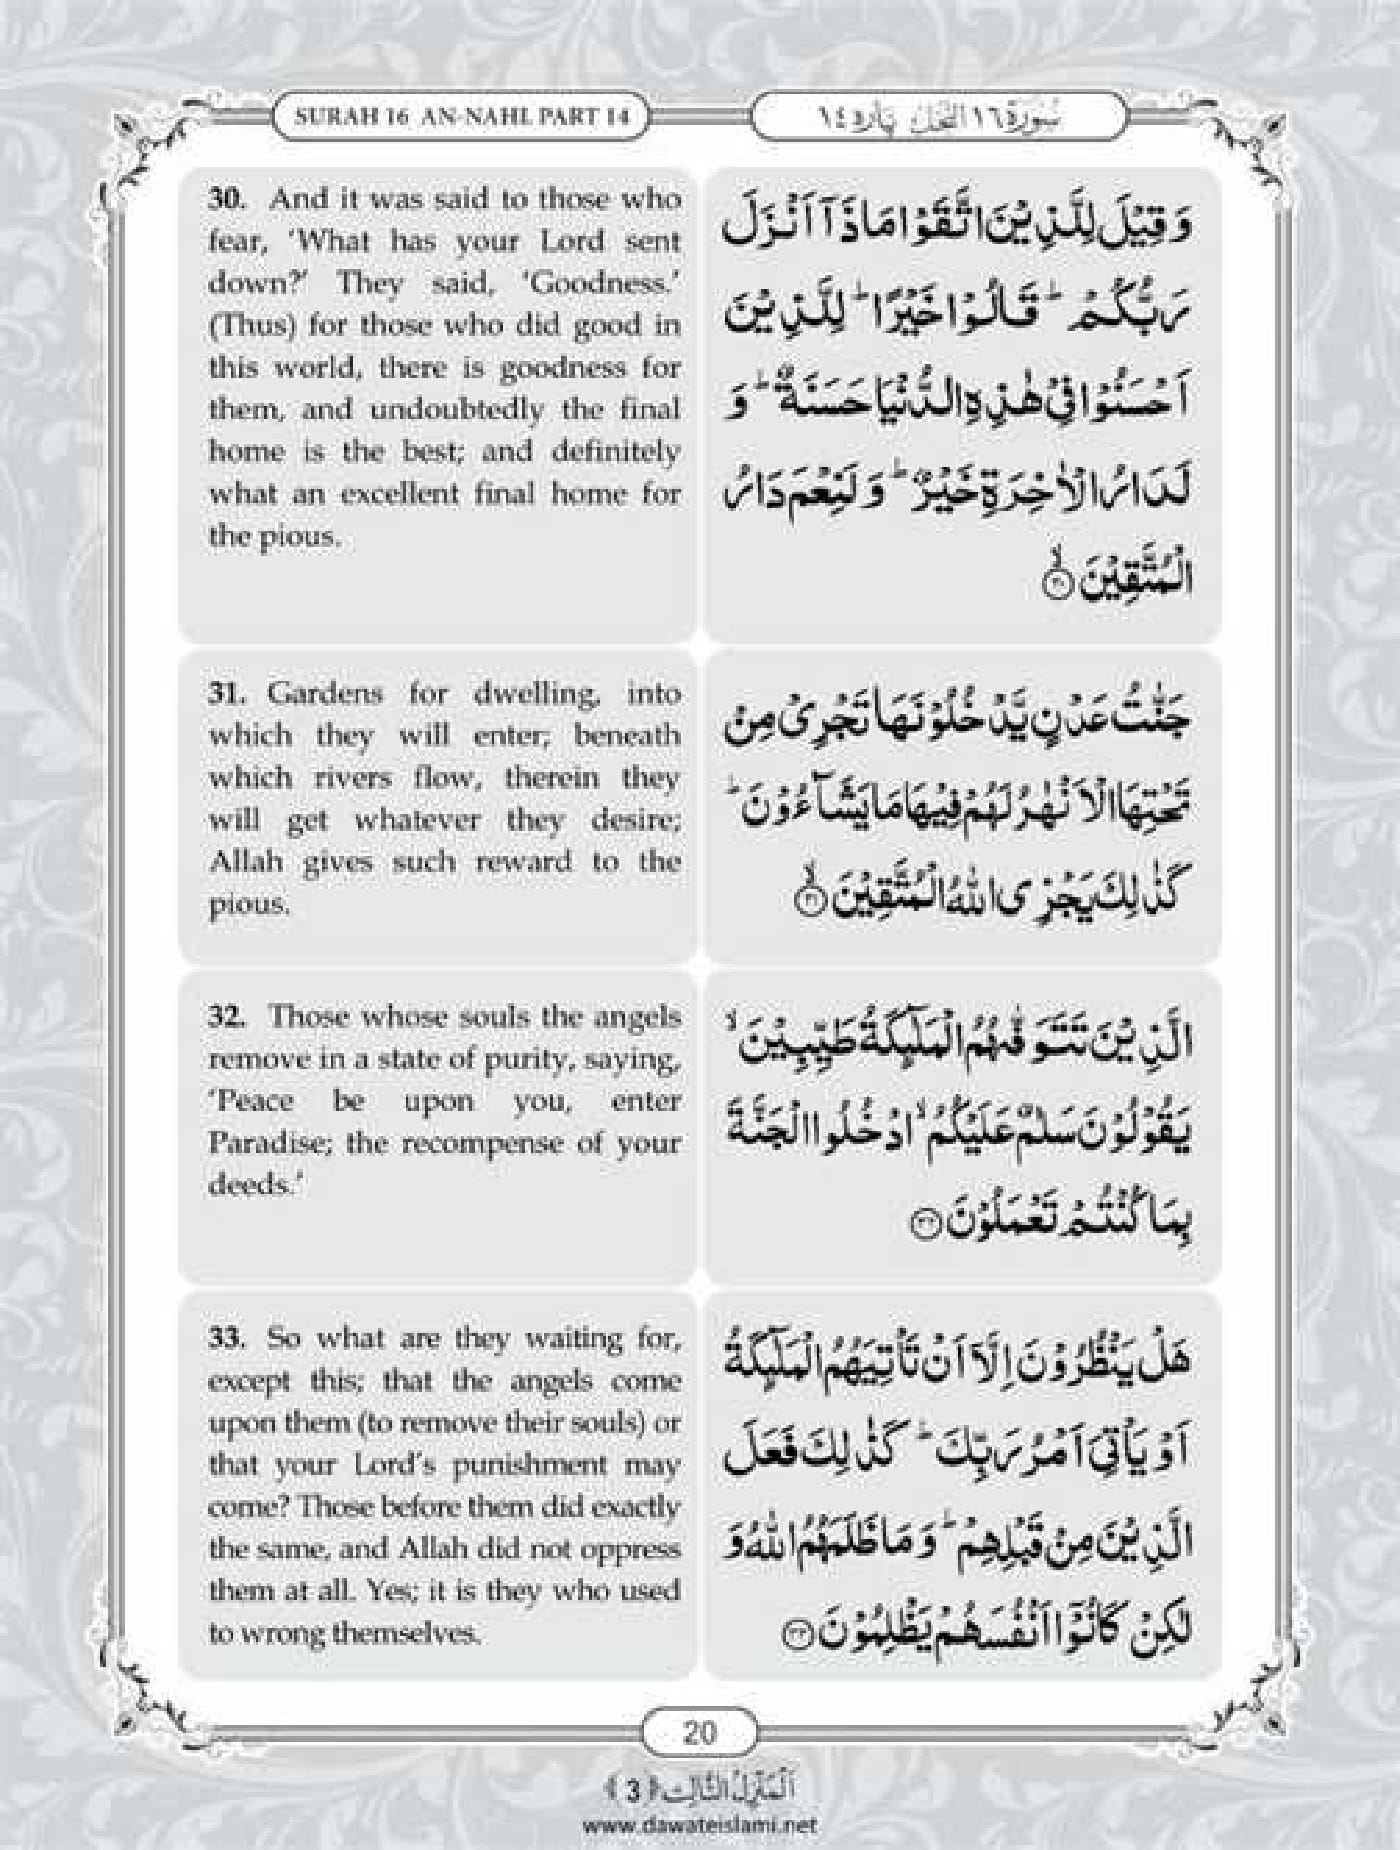 SURAH 16 AN-NAHL PART 14
سُوْرَة ١٦ النَّحْل پاره ١٤
30. And it was said to those who
fear, ‘What has your Lord sent
down?’ They said, ‘Goodness.’
(Thus) for those who did good in
this world, there is goodness for
them, and undoubtedly the final
home is the best; and definitely
what an excellent final home for
the pious.
وَ قِیْلَ لِلَّذِیْنَ اتَّقَوْا مَا ذَاۤ اَنْزَلَ
رَبُّكُمْ ؕ قَالُوْا خَیْرًا ؕ لِلَّذِیْنَ
اَحْسَنُوْا فِیْ هٰذِهِ الدُّنْیَا حَسَنَةٌ ؕ وَ
لَدَارُ الْاٰخِرَةِ خَیْرٌ ؕ وَ لَنِعْمَ دَارُ
الْمُتَّقِیْنَ ۙ﴿۳۰﴾
31. Gardens for dwelling, into
which they will enter; beneath
which rivers flow, therein they
will get whatever they desire;
Allah gives such reward to the
pious.
جَنّٰتُ عَدْنٍ یَّدْخُلُوْنَهَا تَجْرِیْ مِنْ
تَحْتِهَا الْاَنْهٰرُ لَهُمْ فِیْهَا مَا یَشَآءُوْنَ ؕ
كَذٰلِكَ یَجْزِی اللّٰهُ الْمُتَّقِیْنَ ۙ﴿۳۱﴾
32. Those whose souls the angels
remove in a state of purity, saying,
‘Peace be upon you, enter
Paradise; the recompense of your
deeds.’
الَّذِیْنَ تَتَوَفّٰىهُمُ الْمَلٰٓىِٕكَةُ طَیِّبِیْنَ ۙ
یَقُوْلُوْنَ سَلٰمٌ عَلَیْكُمُ ۙ ادْخُلُوا الْجَنَّةَ
بِمَا كُنْتُمْ تَعْمَلُوْنَ ﴿۳۲﴾
33. So what are they waiting for,
except this; that the angels come
upon them (to remove their souls) or
that your Lord’s punishment may
come? Those before them did exactly
the same, and Allah did not oppress
them at all. Yes; it is they who used
to wrong themselves.
هَلْ یَنْظُرُوْنَ اِلَّاۤ اَنْ تَاْتِیَهُمُ الْمَلٰٓىِٕكَةُ
اَوْ یَاْتِیَ اَمْرُ رَبِّكَ ؕ كَذٰلِكَ فَعَلَ
الَّذِیْنَ مِنْ قَبْلِهِمْ ؕ وَ مَا ظَلَمَهُمُ اللّٰهُ وَ
لٰكِنْ كَانُوْۤا اَنْفُسَهُمْ یَظْلِمُوْنَ ﴿۳۳﴾
20
اَلْمَنْزِلُ الثَّالِث ﴿3﴾
www.dawateislami.net